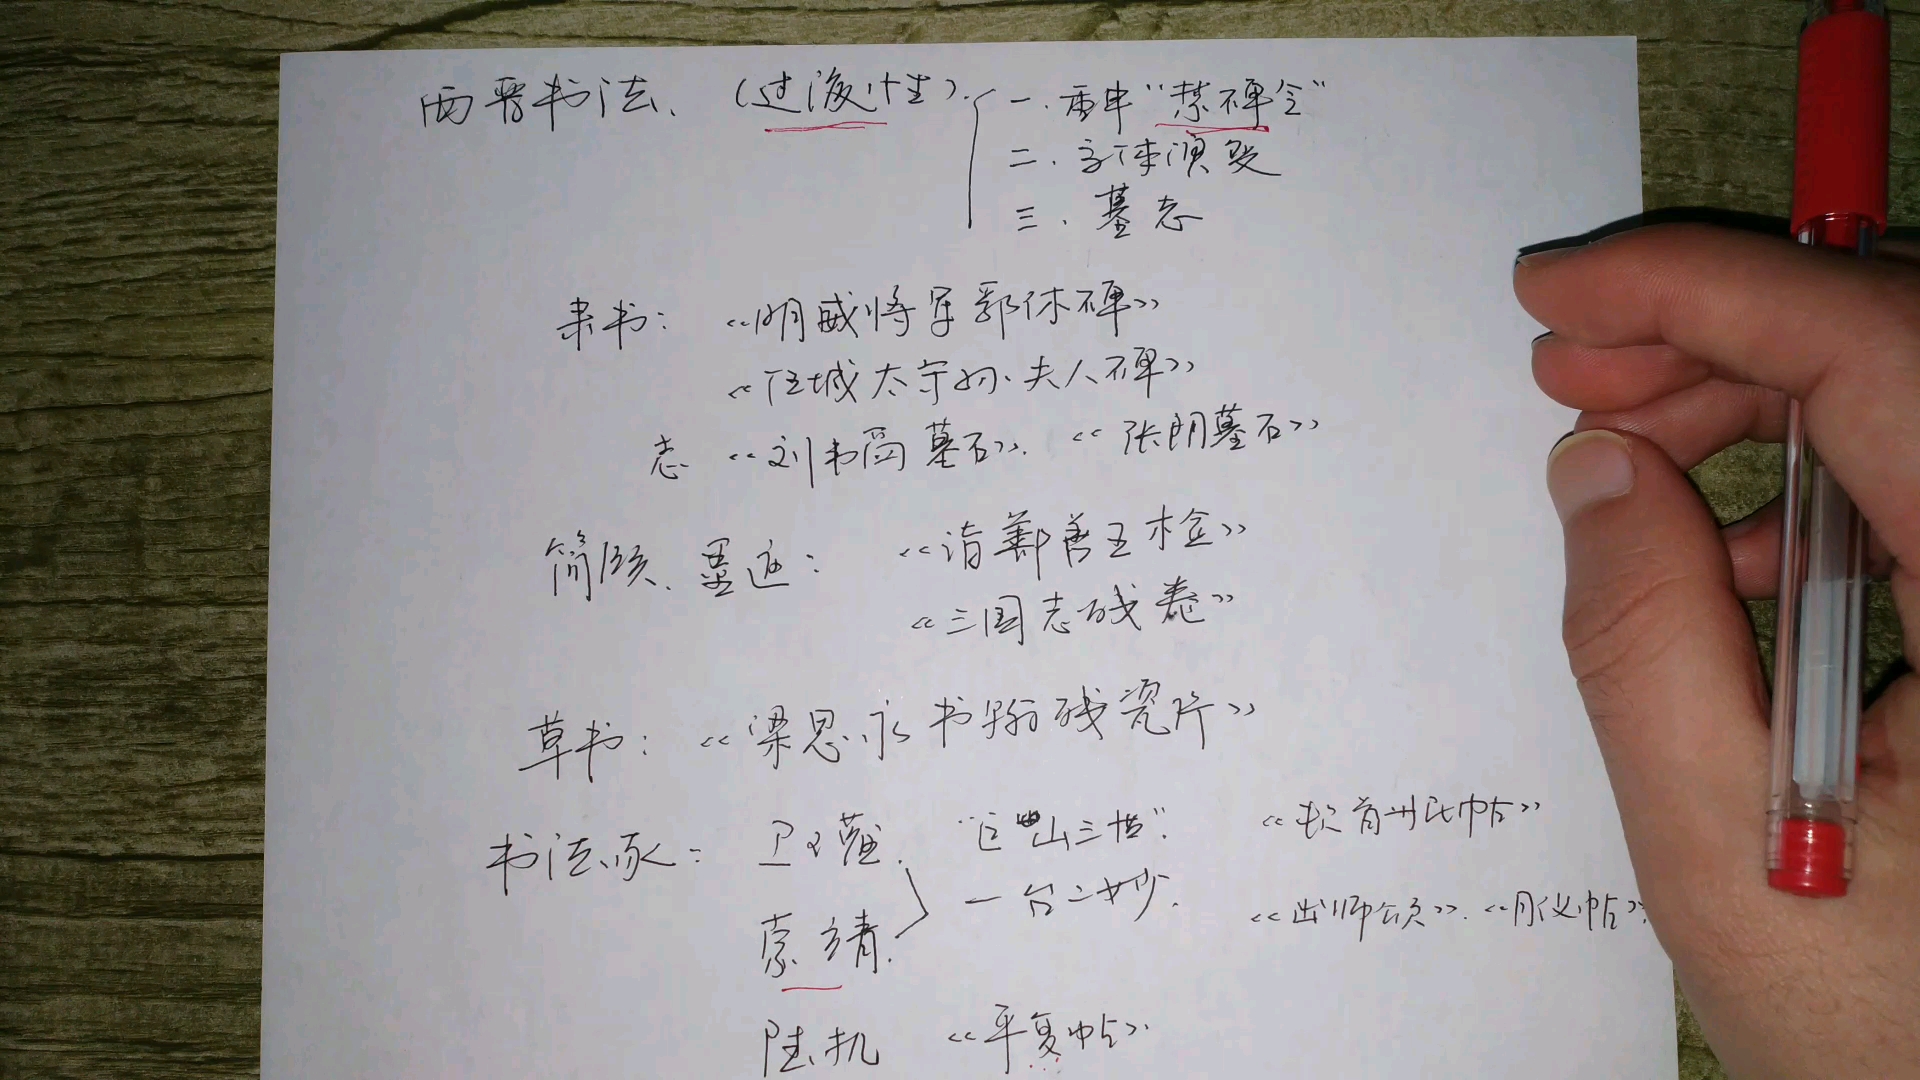 西晋书法、(过渡性).
一.重申“禁碑令”
二.字体演变
三.墓志
隶书:《明威将军郭休碑》
《任城太守孙夫人碑》
志《刘韦 墓石》.《张朗墓石》
简牍、墨迹:《诣鄯善王检》
《三国志残卷》
草书:《梁思永书 残瓷片》
书法家:卫瓘.“巨 山三世”.《顿首州民帖》
索靖.一台二妙.《出师颂》.《月仪帖》.
陆机《平复帖》.